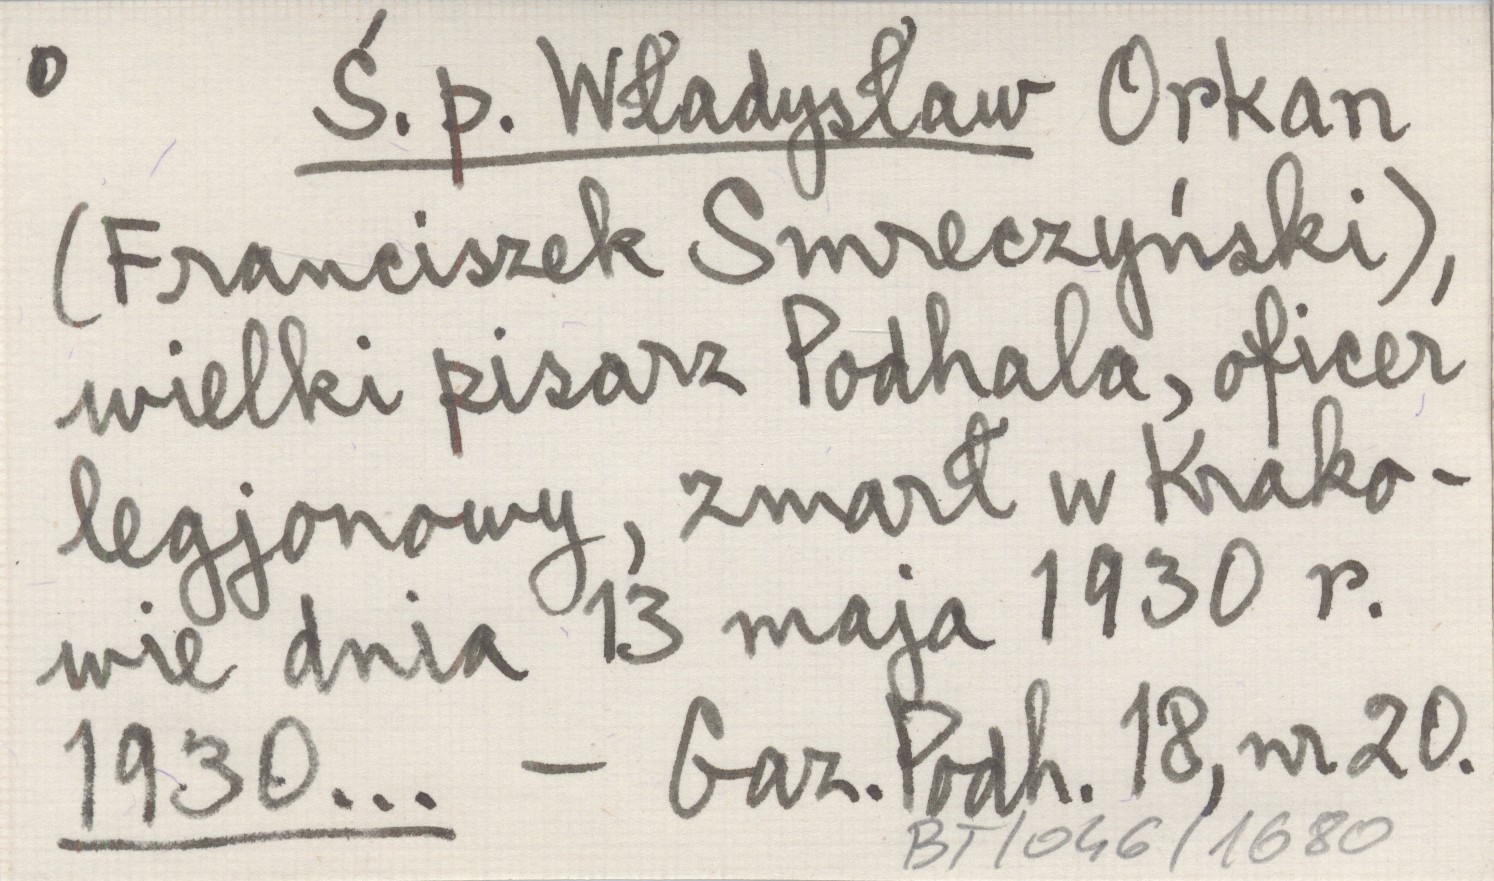 o Ś. p. Władysław Orkan
(Franciszek Smreczyński),
wielki pisarz Podhala, oficer
legjonowy, zmarł w Krako-
wie dnia 13 maja 1930 r.
1930... – Gaz. Podh. 18, nr 20.
BT/046/1680